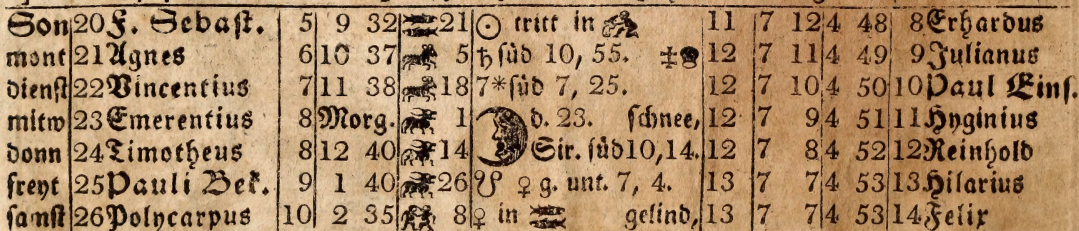 Son 20 F. Sebast. 5 9 32 ♓ 21 ☉ tritt in ♒ 11 7 12 4 48 8 Erhardus
mont 21 Agnes 6 10 37 ♈ 5 ♄ süd 10, 55. 12 7 11 4 49 9 Julianus
dienst 22 Vincentius 7 11 38 ♈ 18 7* süd 7, 25. 12 7 10 4 50 10 Paul Eins.
mitw 23 Emerentius 8 Morg. ♉ 1 ☽ d. 23. schnee, 12 7 9 4 51 11 Hyginius
donn 24 Timotheus 8 12 40 ♉ 14 Sir. süd 10, 14. 12 7 8 4 52 12 Reinhold
freyt 25 Pauli Bek. 9 1 40 ♉ 26 ☋ ♀ g. unt. 7, 4. 13 7 7 4 53 13 Hilarius
samst 26 Polycarpus 10 2 35 ♊ 8 ♀ in ♓ gelind, 13 7 7 4 53 14 Felix